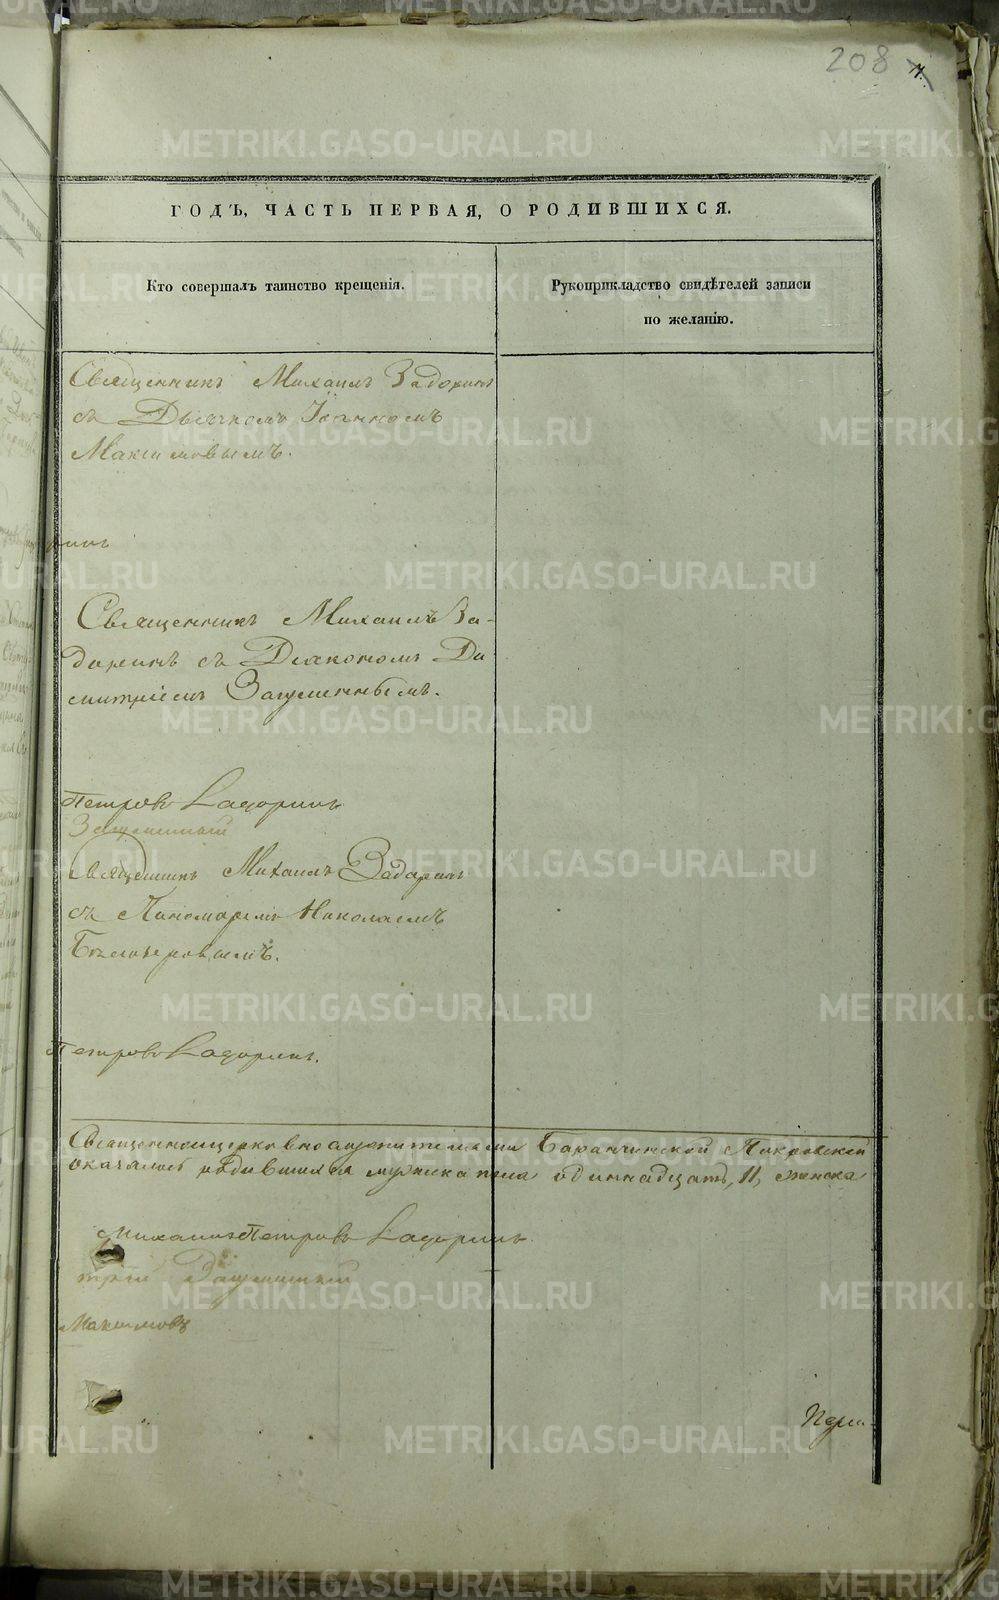 208
ГОДЪ, ЧАСТЬ ПЕРВАЯ, О РОДИВШИХСЯ.
Кто совершалъ таинство крещенія.
Рукоприкладство свидѣтелей записи
по желанію.
Священникъ Михаилъ Задоринъ
съ Дьячкомъ Іоанномъ
Максимовымъ.
ринъ
Священникъ Михаилъ За-
доринъ съ Діакономъ Ди
митріемъ Загуменнымъ.
Петровъ Задоринъ
Загуменный
Священникъ Михаилъ Задоринъ
съ Пономаремъ Николаемъ
Бѣлозеровымъ.
Петровъ Задоринъ.
Священноцерковнослужителями Баранчинской Покровской
оказалось родившихся мужска пола одиннадцать, 11, женска
Михаилъ Петровъ Задоринъ
трій Загуменный
Максимовъ
METRIKI.GASO-URAL.RU